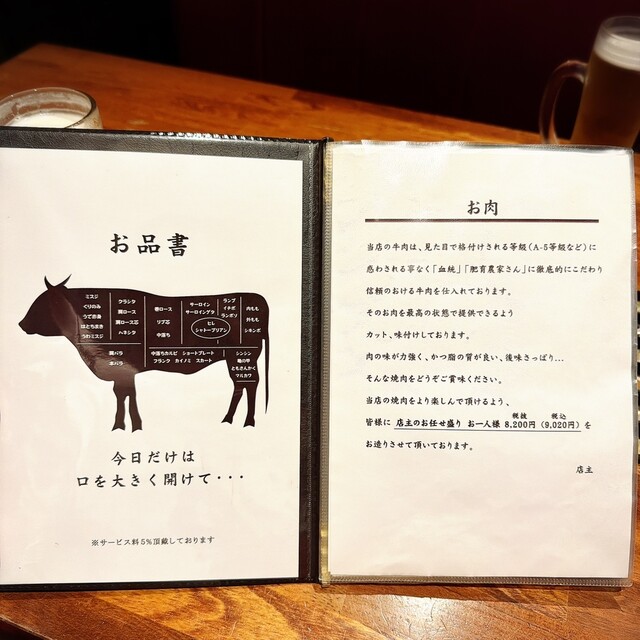 お品書
ミスジ
ぐりのみ
うで赤身
はとちまき
うわミスジ
クラシタ
肩ロース
肩ロース芯
ハネシタ
巻ロース
リブ芯
中落ち
サーロイン
サーロインゲタ
ヒレ
シャトーブリアン
ランプ
イチボ
ランボソ
内もも
外もも
シキンボ
肩バラ
本バラ
中落ちカルビ ショートプレート
フランク カイノミ スカート
シンシン
亀の甲
ともさんかく
マルカワ
今日だけは
口を大きく開けて・・・
※サービス料5%頂戴しております
お肉
当店の牛肉は、見た目で格付けされる等級(A-5等級など)に
惑わされる事なく「血統」「肥育農家さん」に徹底的にこだわり
信頼のおける牛肉を仕入れております。
そのお肉を最高の状態で提供できるよう
カット、味付けしております。
肉の味が力強く、かつ脂の質が良い、後味さっぱり…
そんな焼肉をどうぞご賞味ください。
当店の焼肉をより楽しんで頂けるよう、
税抜 税込
皆様に 店主のお任せ盛り お一人様 8,200円 (9,020円) を
お造りさせて頂いております。
店主